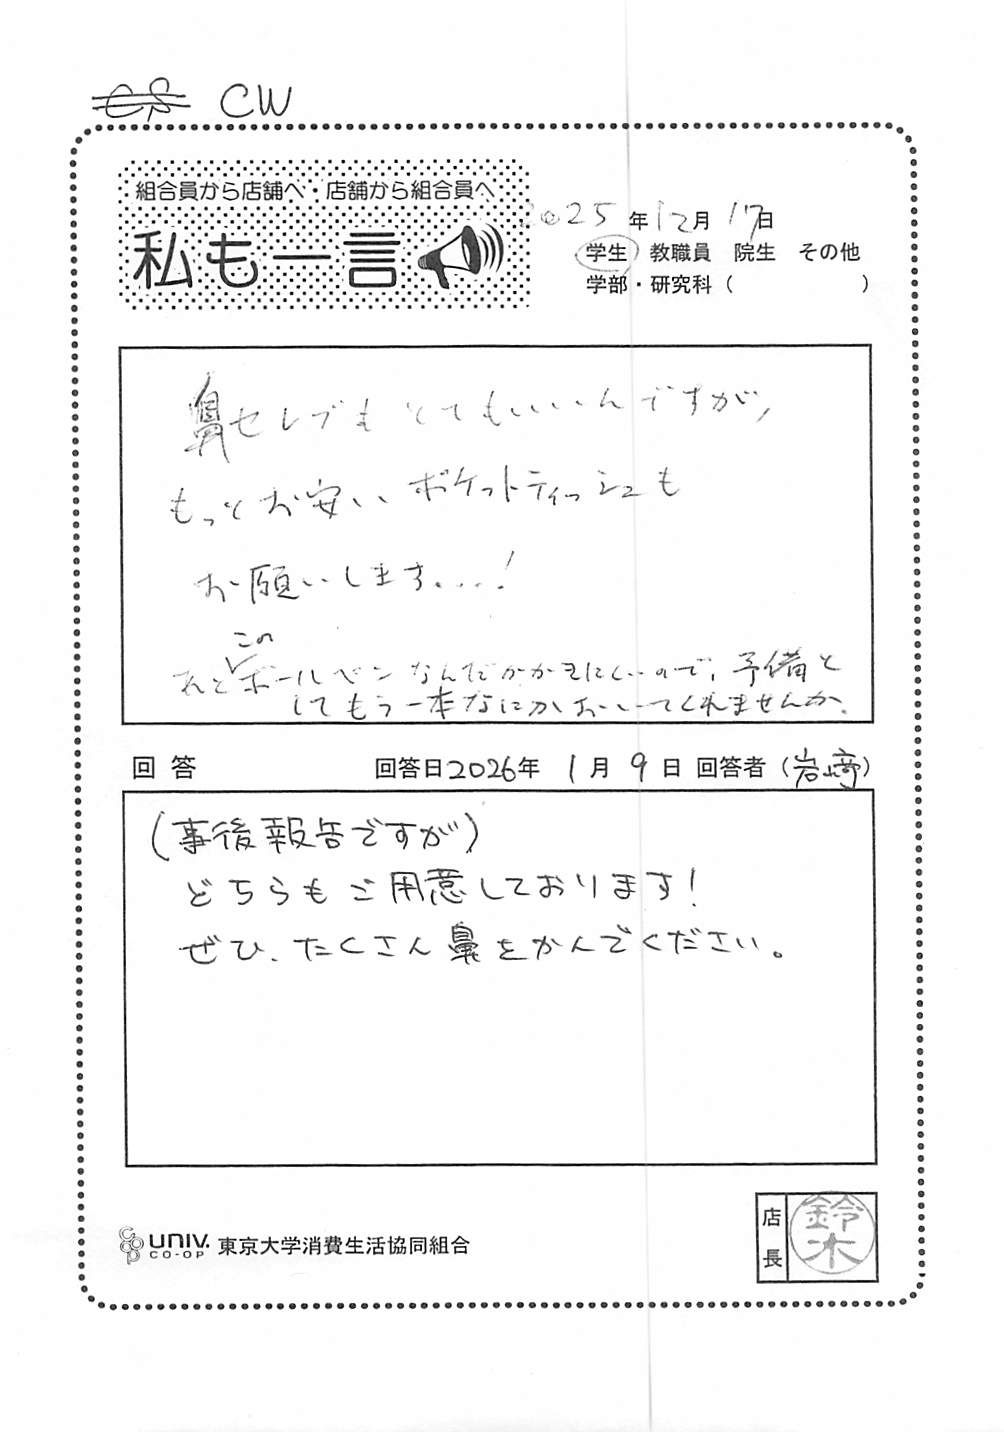 CW
組合員から店舗へ・店舗から組合員へ
私も一言
2025年12月17日
学生 教職員 院生 その他
学部・研究科（ ）
鼻セレブもとてもいいんですが、
もっとお安いポケットティッシュも
お願いします....!
この
あとボールペンなんだかかきにくいので、予備と
してもう一本なにかおいてくれませんか。
回答 回答日2026年 1月 9日 回答者（岩崎）
(事後報告ですが)
どちらもご用意しております!
ぜひ、たくさん鼻をかんでください。
店長
鈴木
CO-OP UNIV. CO-OP 東京大学消費生活協同組合